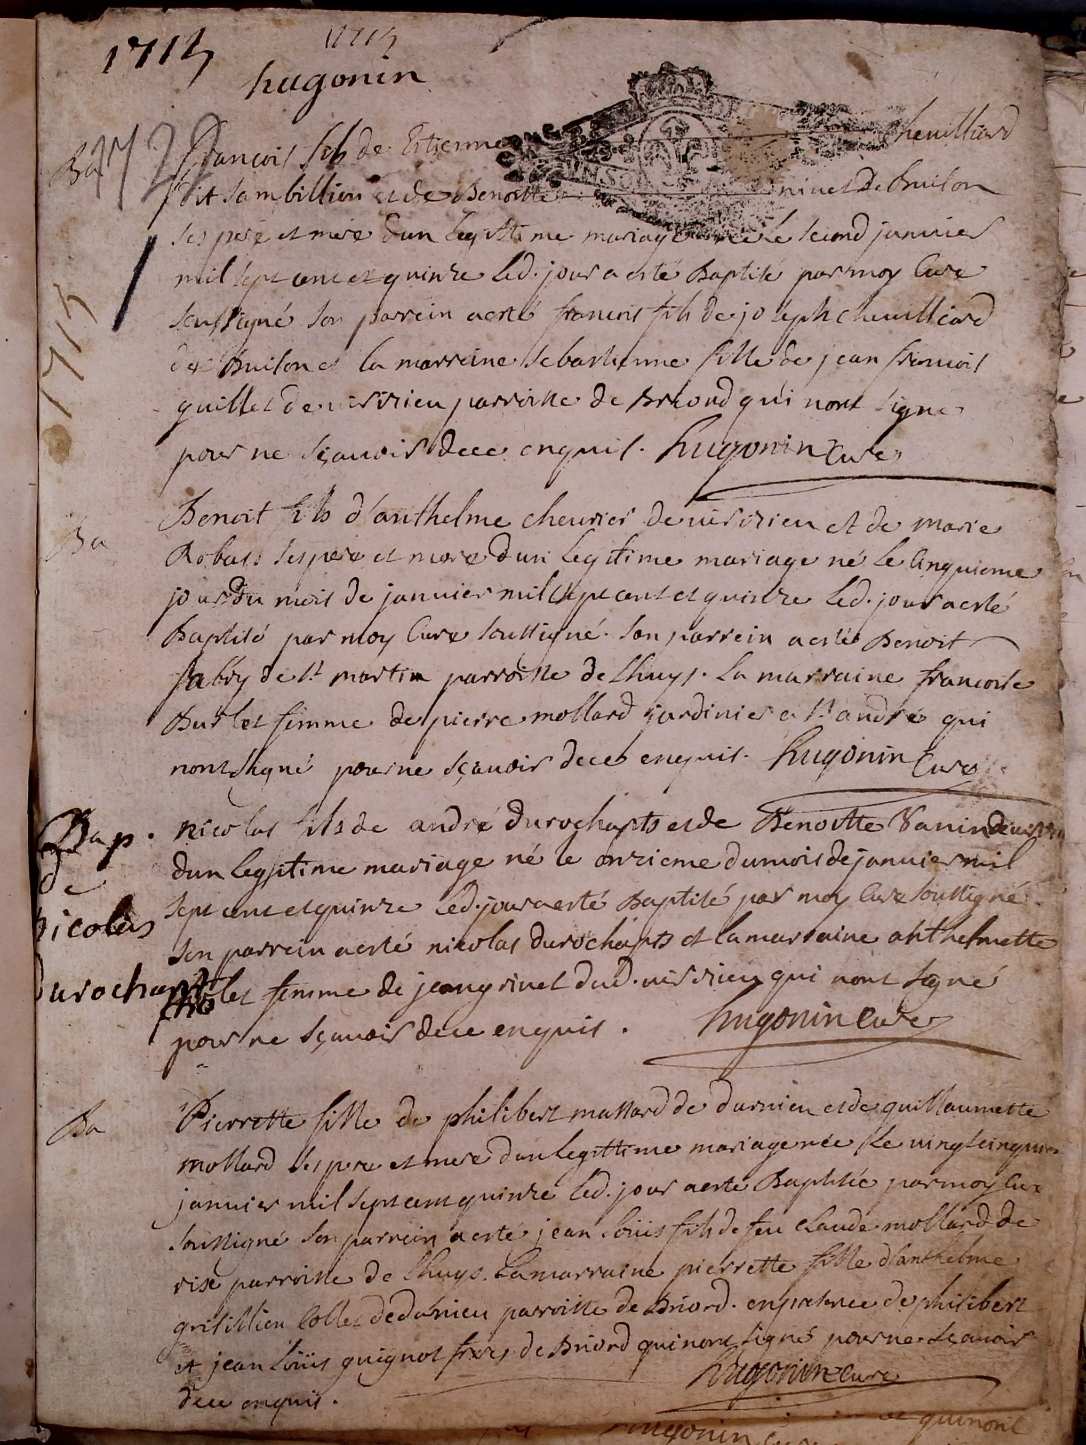 1715 1715
hugonin
Ba
françois fils de Estienne cheuilliard
dit sambillion et de Benoitte nivet de buison
ses pere et mere d'un legittime mariage né le second januier
mil sept cent et quinze led. jour a esté Baptisé par moy Curé
soussigné son parrein a esté francois fils de joseph cheuilliard
de Buison et la marreine sebastienne fille de jean francois
quillet de uerizieu parroisse de Briord qui n'ont signé
pour ne sçauoir de ce enquis. hugonin Curé
Ba
Benoit fils d'anthelme cheurier de uerizieu et de marie
Robass ses pere et mere d'un legitime mariage né le cinquieme
jour du mois de januier mil sept cent et quinze led. jour a esté
Baptisé par moy Curé soussigné. son parrein a esté Benoit
fabry de st martin parroisse de Lhuys. La marraine francoise
Burlet femme de pierre mollard jardinier a st andré qui
n'ont signé pour ne sçauoir de ce enquis. hugonin Curé
Bap.
de
nicolas
durochapts
nicolas fils de andré durochapts et de Benoitte Vanin de
d'un legitime mariage né le onzieme du mois de januier mil
sept cent et quinze led. jour a esté Baptisé par moy Curé soussigné
son parrein a esté nicolas durochapts et la marraine anthelmette
femme de jean grinet dud. uerizieu qui n'ont signé
pour ne sçauoir de ce enquis. hugonin Curé
Ba
Pierrette fille de philibert mollard de darnieu et de guillaumette
mollard ses pere et mere d'un legittime mariage née le uingt cinquieme
januier mil sept cent quinze led. jour a esté Baptisée par moy Curé
soussigné son parrein a esté jean Loüis fils de feu claude mollard de
rix parroisse de Lhuys. La marraine pierrette fille d'anthelme
collet de darnieu parroisse de Briord. en presence de philibert
et jean Loüis guignot freres de Briord qui n'ont signé pour ne sçauoir
de ce enquis. hugonin Curé